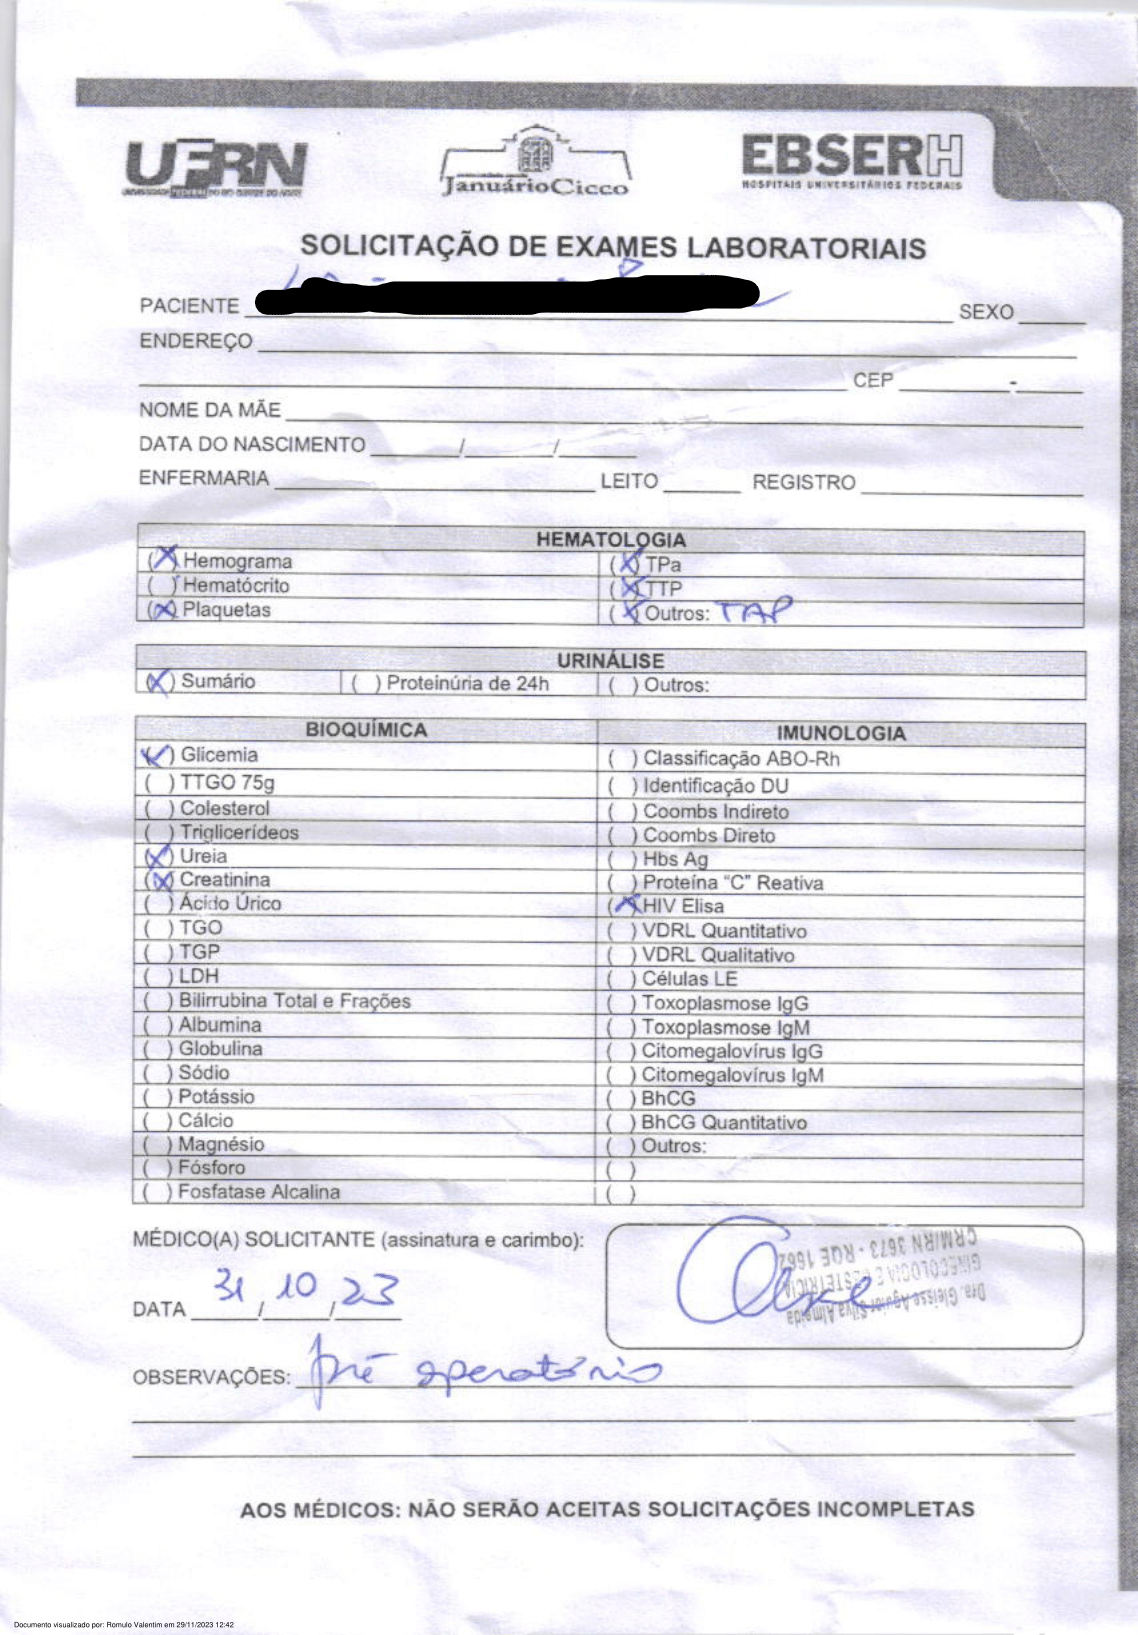 UFRN
UNIVERSIDADE FEDERAL DO RIO GRANDE DO NORTE
JanuárioCicco
EBSERH
HOSPITAIS UNIVERSITÁRIOS FEDERAIS
SOLICITAÇÃO DE EXAMES LABORATORIAIS
PACIENTE SEXO
ENDEREÇO
CEP -
NOME DA MÃE
DATA DO NASCIMENTO / /
ENFERMARIA LEITO REGISTRO
HEMATOLOGIA
(X) Hemograma (X) TPa
( ) Hematócrito (X) TTP
(X) Plaquetas (X) Outros: TAP
URINÁLISE
(X) Sumário ( ) Proteinúria de 24h ( ) Outros:
BIOQUÍMICA IMUNOLOGIA
(X) Glicemia ( ) Classificação ABO-Rh
( ) TTGO 75g ( ) Identificação DU
( ) Colesterol ( ) Coombs Indireto
( ) Triglicerídeos ( ) Coombs Direto
(X) Ureia ( ) Hbs Ag
(X) Creatinina ( ) Proteína “C” Reativa
( ) Ácido Úrico (X) HIV Elisa
( ) TGO ( ) VDRL Quantitativo
( ) TGP ( ) VDRL Qualitativo
( ) LDH ( ) Células LE
( ) Bilirrubina Total e Frações ( ) Toxoplasmose IgG
( ) Albumina ( ) Toxoplasmose IgM
( ) Globulina ( ) Citomegalovírus IgG
( ) Sódio ( ) Citomegalovírus IgM
( ) Potássio ( ) BhCG
( ) Cálcio ( ) BhCG Quantitativo
( ) Magnésio ( ) Outros:
( ) Fósforo ( )
( ) Fosfatase Alcalina ( )
MÉDICO(A) SOLICITANTE (assinatura e carimbo):
Dra. Gleisse Aguiar Silva Almeida
GINECOLOGIA E OBSTETRICIA
CRM/RN 3673 - RQE 1662
DATA 31/10/23
OBSERVAÇÕES: Pré operatório
AOS MÉDICOS: NÃO SERÃO ACEITAS SOLICITAÇÕES INCOMPLETAS
Documento visualizado por: Romulo Valentim em 29/11/2023 12:42